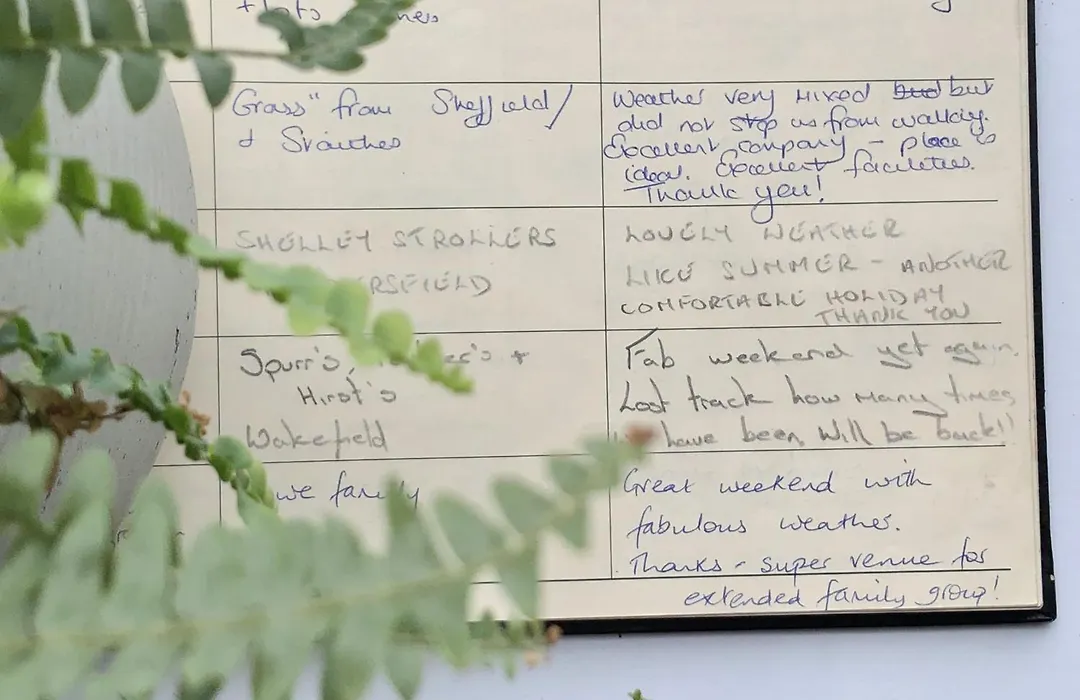 Grass" from Sheffield/
& Staithes
Weather very mixed but but
did not stop us from walking.
Excellent company - place is
ideal. Excellent facilities.
Thank you!
SHELLEY STROLLERS
RSFIELD
LOVELY WEATHER
LIKE SUMMER - ANOTHER
COMFORTABLE HOLIDAY
THANK YOU
Spurr's, er's +
Hirst's
Wakefield
Fab weekend yet again.
Lost track how many times
have been, Will be back!!
we family
Great weekend with
fabulous weather.
Thanks - super venue for
extended family group!